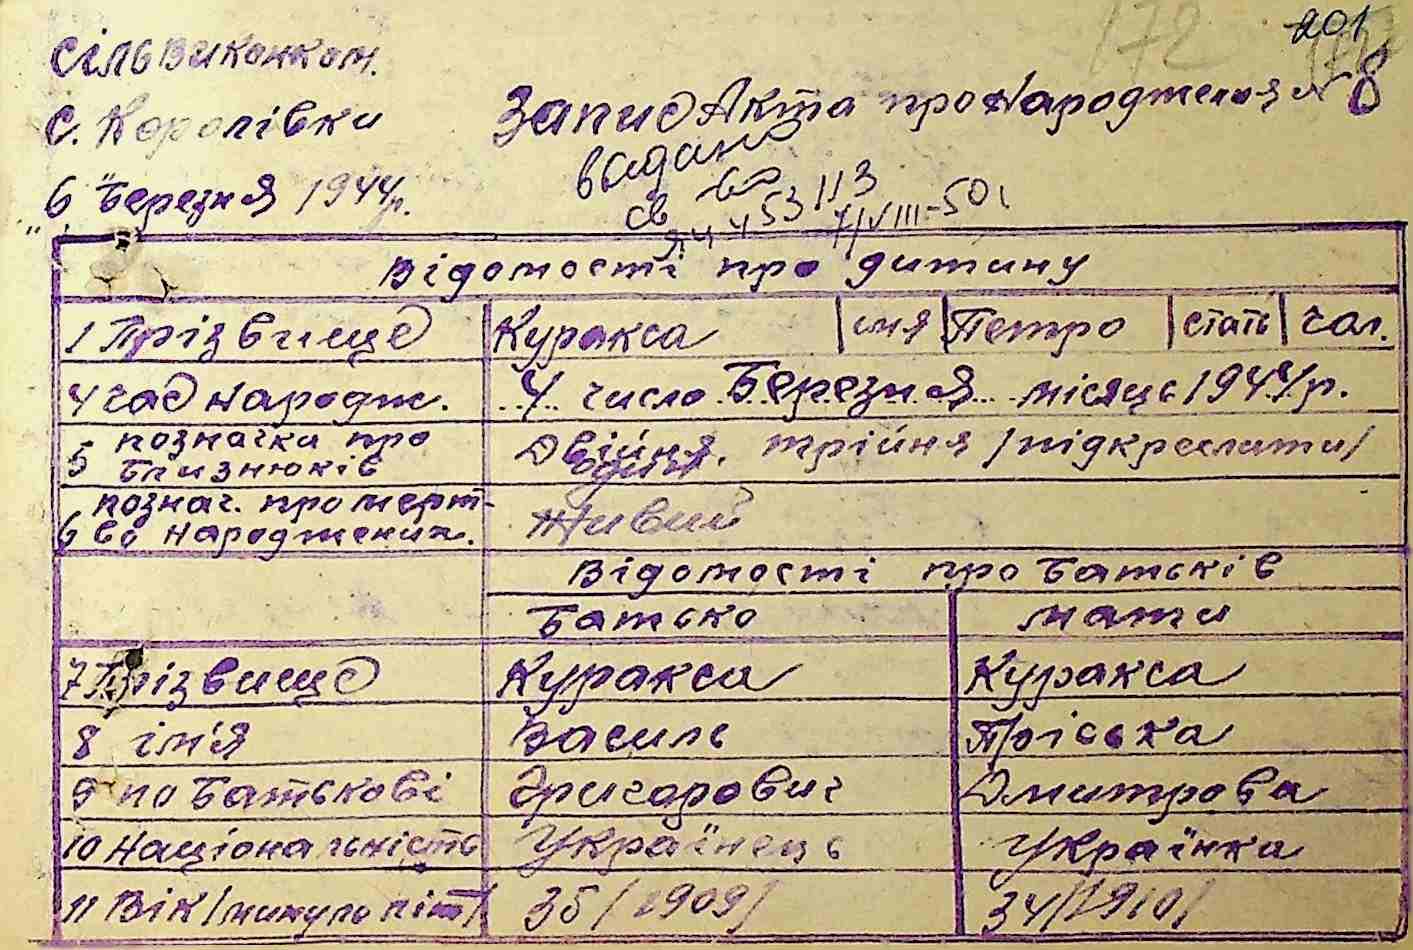 172 201
Сільвиконком.
с. Королівки
Запис Акта про Народження № 8
видано
св во
ЯЧ 453113
7/VIII-50.
"6" Березня 1944р.
Відомості про дитину
1 Прізвище Куракса імя Петро стать чол.
4 час Народж. 4 число Березня місяць 1944р.
5 позначка про близнюків Двійня, трійня /підкреслити/
один
6 познач. про мертво народжених. Живий
Відомості про Батьків
Батько мати
7 Прізвище Куракса Куракса
8 ім'я Василь Пріська
9 по Батькові Григорович Дмитрова
10 Національність Українець Українка
11 Вік /минуло літ/ 35 /1909/ 34 /1910/